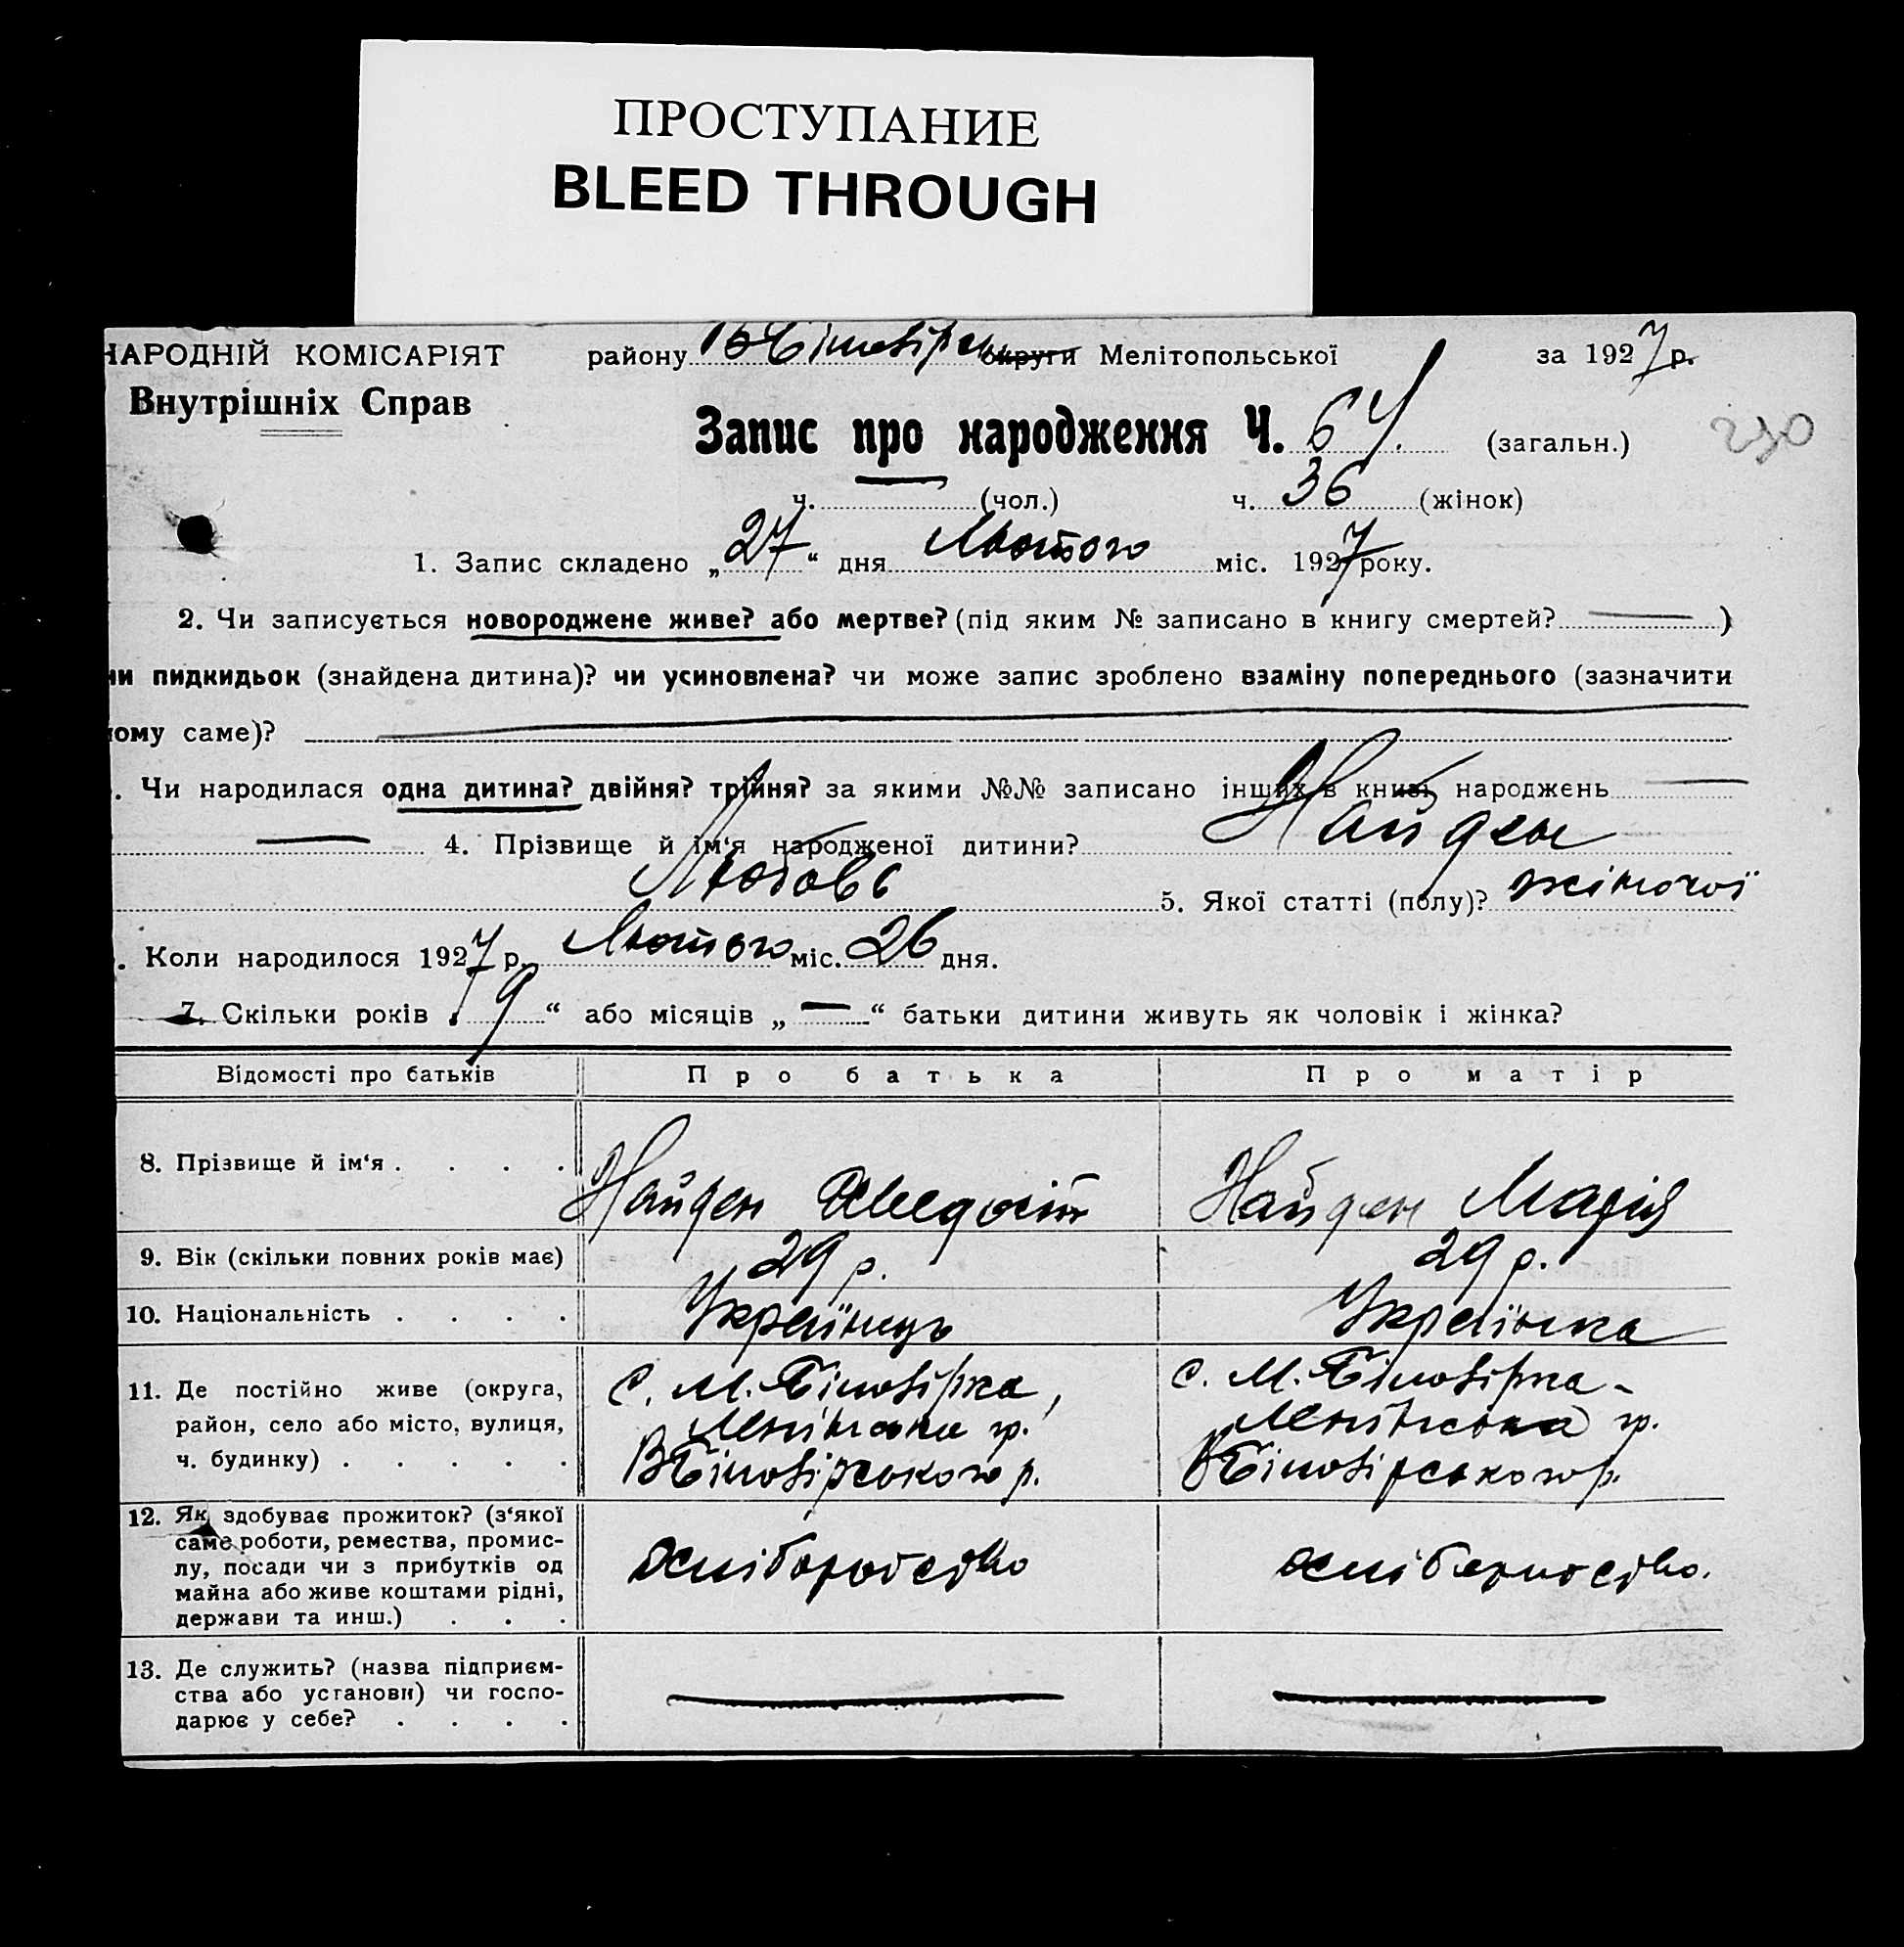 ПРОСТУПАНИЕ
BLEED THROUGH
НАРОДНІЙ КОМІСАРІЯТ району округи Мелітопольської за 1927 р.
Внутрішніх Справ
Запис про народження Ч. 64. (загальн.) 230
ч. (чол.) ч. 36 (жінок)
1. Запис складено „27“ дня Лютого міс. 1927 року.
2. Чи записується новороджене живе? або мертве? (під яким № записано в книгу смертей? — )
чи пидкидьок (знайдена дитина)? чи усиновлена? чи може запис зроблено взаміну попереднього (зазначити
кому саме)?
. Чи народилася одна дитина? двійня? трійня? за якими №№ записано інших в книзі народжень —
— 4. Прізвище й ім‘я народженої дитини? Найден
Любовь 5. Якої статті (полу)? жіночої
. Коли народилося 1927 р. Лютого міс. 26 дня.
7. Скільки років „9“ або місяців „—“ батьки дитини живуть як чоловік і жінка?
Відомості про батьків Про батька Про матір
8. Прізвище й ім‘я . . . . Найден Найден Марія
9. Вік (скільки повних років має) 29 р. 29 р.
10. Національність . . . . Українець Українка
11. Де постійно живе (округа, с. М. Білозірка, с. М. Білозірка -
район, село або місто, вулиця, Менчікури гр.
ч. будинку) . . . . . ВБілозірського р. ВБілозірського р.
12. Як здобуває прожиток? (з‘якої
саме роботи, ремества, промис-
лу, посади чи з прибутків од хліборобство хліборобство.
майна або живе коштами рідні,
держави та инш.) . . .
13. Де служить? (назва підприєм-
ства або установи) чи госпо-
дарює у себе? . . . .